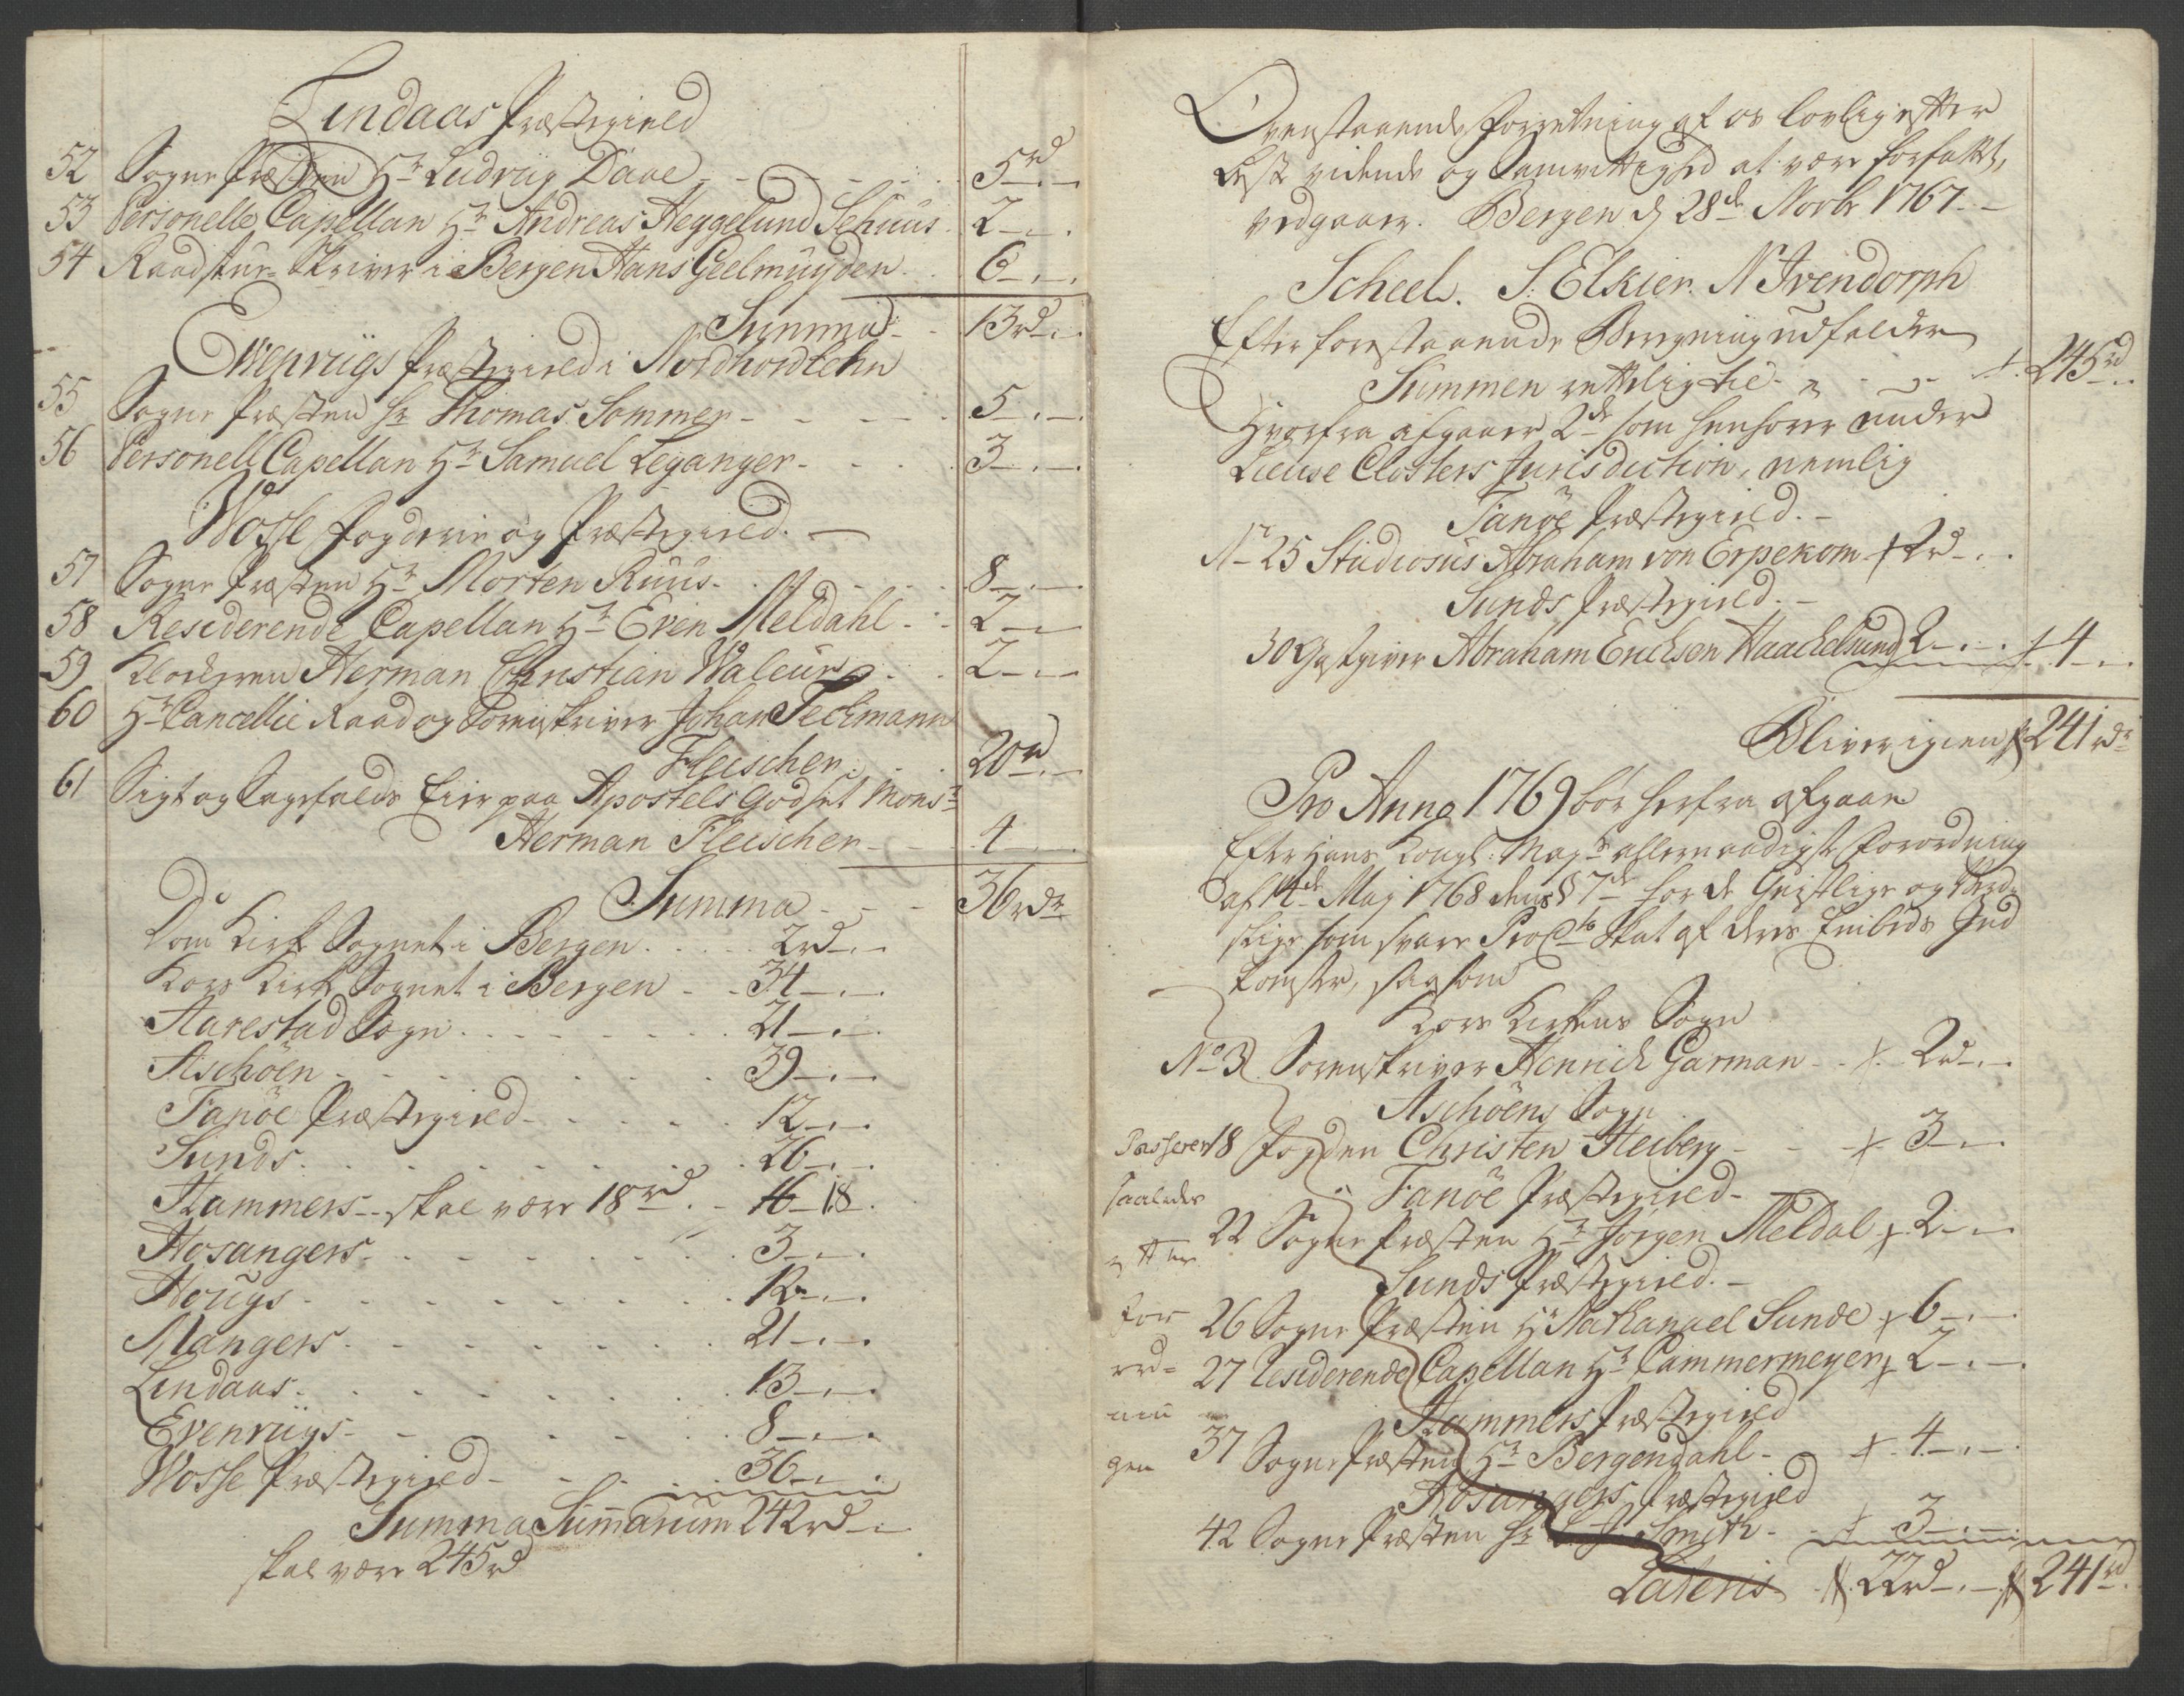 Lindaas Præstegield
52 Sogne Præsten Hr Ludvig Daae - - - 5rd
53 Personelle Capellan Hr Andreas Heggelund Schuus. 2 - . -
54 Raadstue-Skriver i Bergen Hans Geelmuyden . . 6 - . -
Summa - 13rd . -
Evenviigs Præstegield i Nordhordlehn
55 Sogne Præsten Hr Thomas Sommer - - - 5 - . -
56 Personell Capellan Hr Samuel Leganger - . . 3 - . -
Wosse Fogderie og Præstegield. -
57 Sogne Præsten Hr Morten Ruus - . . . 8 - . -
58 Residerende Capellan Hr Even Meldahl - . 2 - . -
59 Klokkeren Herman Christian Waleur . . 2 - . -
60 Hr Cancellie Raad og Sorenskriver Johan Seckmann
Fleischer . . 20rd . -
61 Sigt og Sagefalds Eier paa Apostels Godset Monsr
Herman Fleischer - - 4 - . -
Summa - - - 36rdr
Dom Kirke Sognet i Bergen . . . 2rd - . -
Kors Kirke Sognet i Bergen - - 34 - . -
Aarestad Sogn . . . . 21 - . -
Aschöen - . . . . 39 - . -
Fanöe Præstegield - . . . 12 - . -
Sunds . . . . . 26 - . -
Hammers - - skal være 18rd . - 16 - 18 .
Hosangers - . . . . 3 - . -
Hougs - . . . . 12 - . -
Mangers . . . . . 21 - . -
Lindaas . . . . . 13 - . -
Evenviigs - . . . . 8 - . -
Wosse Præstegield - . . . 36 - . -
Summa Summarum 242rd - . -
skal være 245rd
Ovenstaaende Forretning af os lovlig efter
beste vidende og Samvittighed at være forfattet,
vedgaaer. Bergen d 28de Novbr 1767. -
Scheel. S. Elkier. N Ivendorph
Efter forestaaende Beregning udfalder
Summen rettelig til - - - 245rd . .
Hvorfra afgaaer 2de som henhører under
Lieuse Closters Jurisdiction, nemlig
Fanöe Præstegield. -
No 25 Studiosus Abraham von Erpekom 2rd - . .
Sunds Præstegield. -
30 Gestgiver Abraham Erichsen Haackelsund 2 - . . 4 - . .
Bliver igien 241rdr
Pro Anno 1769 bør herfra afgaae
Efter Hans Kongl: Mayts allernaadigste Forordning
af 14de Maj 1768 dens § 7de for de Geistlige og Verds
slige som svare ProCto Skat af deres Embeds Ind
komster, saasom
Kors Kirkens Sogn
No 3 Sorenskriver Henrich Garman - . 2rd - . -
Aschöens Sogn
18 Fogden Christen Heiberg - - 3 - . -
Fanöe Præstegield -
22 Sogne Præsten Hr Jørgen Meldal 2 - . -
Sunds Præstegield. -
26 Sogne Præsten Hr Nathanael Sunde 6 - . -
27 Residerende Capellan Hr Cammermeyer 2 - . -
Hammers Præstegield
37 Sogne Præsten Hr Bergendahl - 4 - . -
Hosangers Præstegield
42 Sogne Præsten Hr Smith - . 3 - . -
Lateris 22rd - . - 241rd
Passerer
saaledes
efter
for
red-
nin
gen